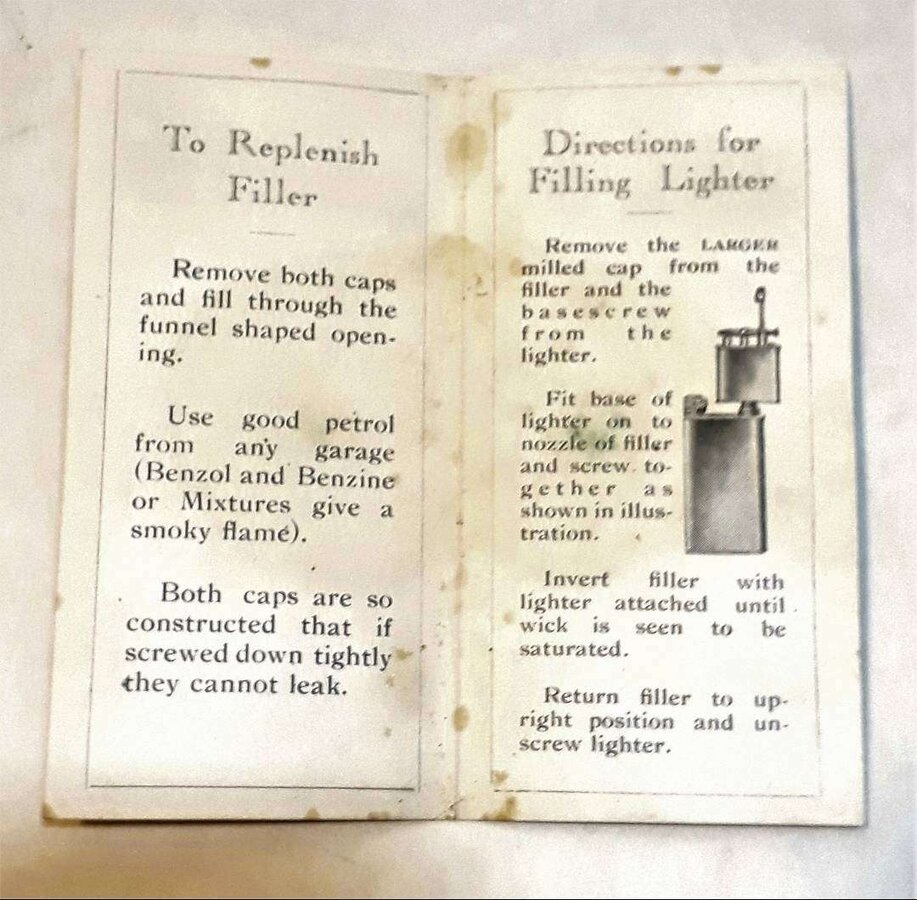 To Replenish
Filler
Remove both caps
and fill through the
funnel shaped open-
ing.
Use good petrol
from any garage
(Benzol and Benzine
or Mixtures give a
smoky flame).
Both caps are so
constructed that if
screwed down tightly
they cannot leak.
Directions for
Filling Lighter
Remove the LARGER
milled cap from the
filler and the
basescrew
from the
lighter.
Fit base of
lighter on to
nozzle of filler
and screw to-
gether as
shown in illus-
tration.
Invert filler with
lighter attached until
wick is seen to be
saturated.
Return filler to up-
right position and un-
screw lighter.